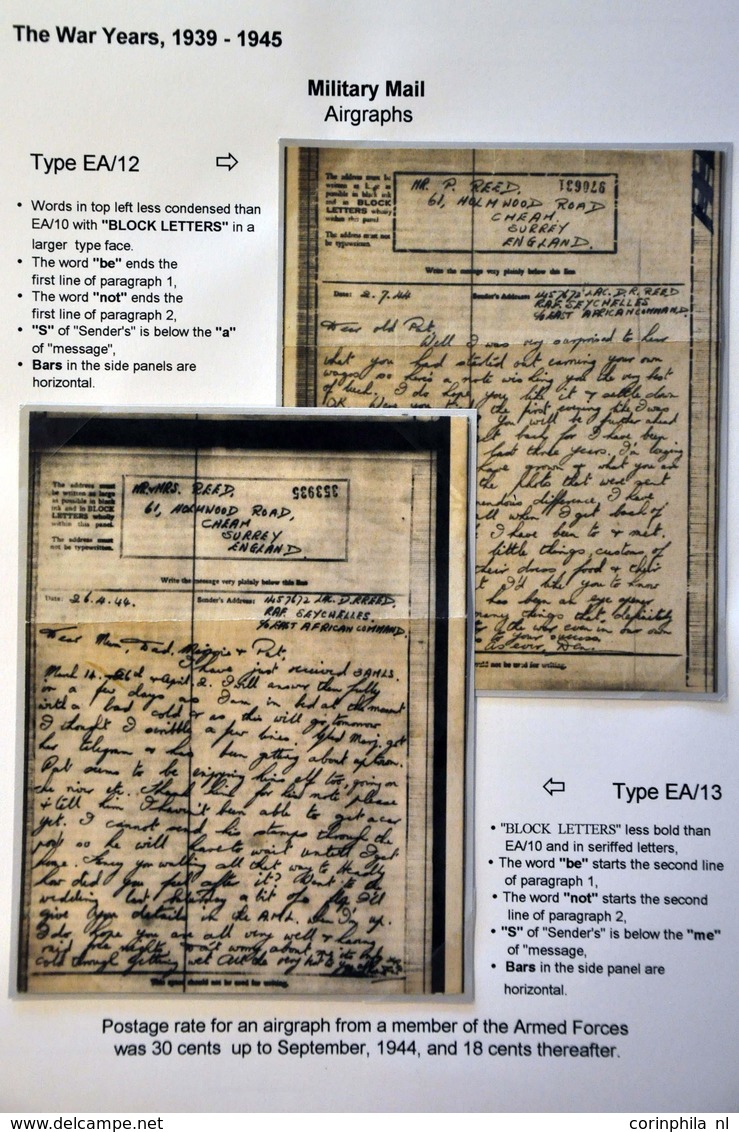 The War Years, 1939 - 1945
Military Mail
Airgraphs
Type EA/12
• Words in top left less condensed than
EA/10 with "BLOCK LETTERS" in a
larger type face.
• The word "be" ends the
first line of paragraph 1,
• The word "not" ends the
first line of paragraph 2,
• "S" of "Sender's" is below the "a"
of "message",
• Bars in the side panels are
horizontal.
The address must be
written as large as
possible in black ink
and in BLOCK
LETTERS wholly
within this panel
The address must not
be typewritten.
MR. P. REED.
61, HOLMWOOD ROAD
CHEAM.
SURREY
ENGLAND.
970631
Write the message very plainly below this line
Date: 2.7.44
Sender's Address: 1457672 LAC. D.R. REED
RAF. SEYCHELLES
C/O EAST AFRICAN COMMAND.
Dear old Pat,
Well I was very surprised to hear
what you had started out earning your own
wages so here's a note wishing you the very best
of luck. I do hope you like it & settle down
the first evening like I was
You will be further ahead
back for I have been
last three years. I'm
have grown & what you are
the photo that were sent
difference, I have
when I get back of
I have been to & met.
little things, customs of
their dress, food & their
I'd like you to know
has been an eye opener
many things that, definitely
the war even in our own
to your success
As ever, Den.
will not be used for writing.
The address must
be written as large
as possible in black
ink and in BLOCK
LETTERS wholly
within this panel.
The address must
not be typewritten.
MR & MRS. REED.
61, HOLMWOOD ROAD,
CHEAM
SURREY
ENGLAND.
353935
Write the message very plainly below this line
Date: 26.4.44.
Sender's Address: 1457672 LAC. D.R. REED.
RAF. SEYCHELLES.
C/O EAST AFRICAN COMMAND.
Dear Mum, Dad, Margie & Pat,
I have just received 3 AMLS.
March 14. & April 2. I will answer them fully
in a few days as I am in bed at the moment
with a bad cold & as this will go tomorrow
I thought I scribble a few lines. Glad Marj. got
her telegram & has been getting about
Pat seems to be enjoying himself too, going on
the river etc. Thank him for his note please
& tell him I haven't been able to get a
yet. I cannot send his stamps through the
post so he will have to wait until I get
home. Fancy you walking all that way to
how did you feel after it? Went to the
wedding last Saturday a bit of a flop I'll
give you details in the AML. when I'm up.
I do hope you are all very well & having
raid free nights, don't worry about me its only a
cold through getting wet
This space should not be used for writing.
Type EA/13
• "BLOCK LETTERS" less bold than
EA/10 and in seriffed letters,
• The word "be" starts the second line
of paragraph 1,
• The word "not" starts the second
line of paragraph 2,
• "S" of "Sender's" is below the "me"
of "message,
• Bars in the side panel are
horizontal.
Postage rate for an airgraph from a member of the Armed Forces
was 30 cents up to September, 1944, and 18 cents thereafter.
postzegelveiling
corinphila nl